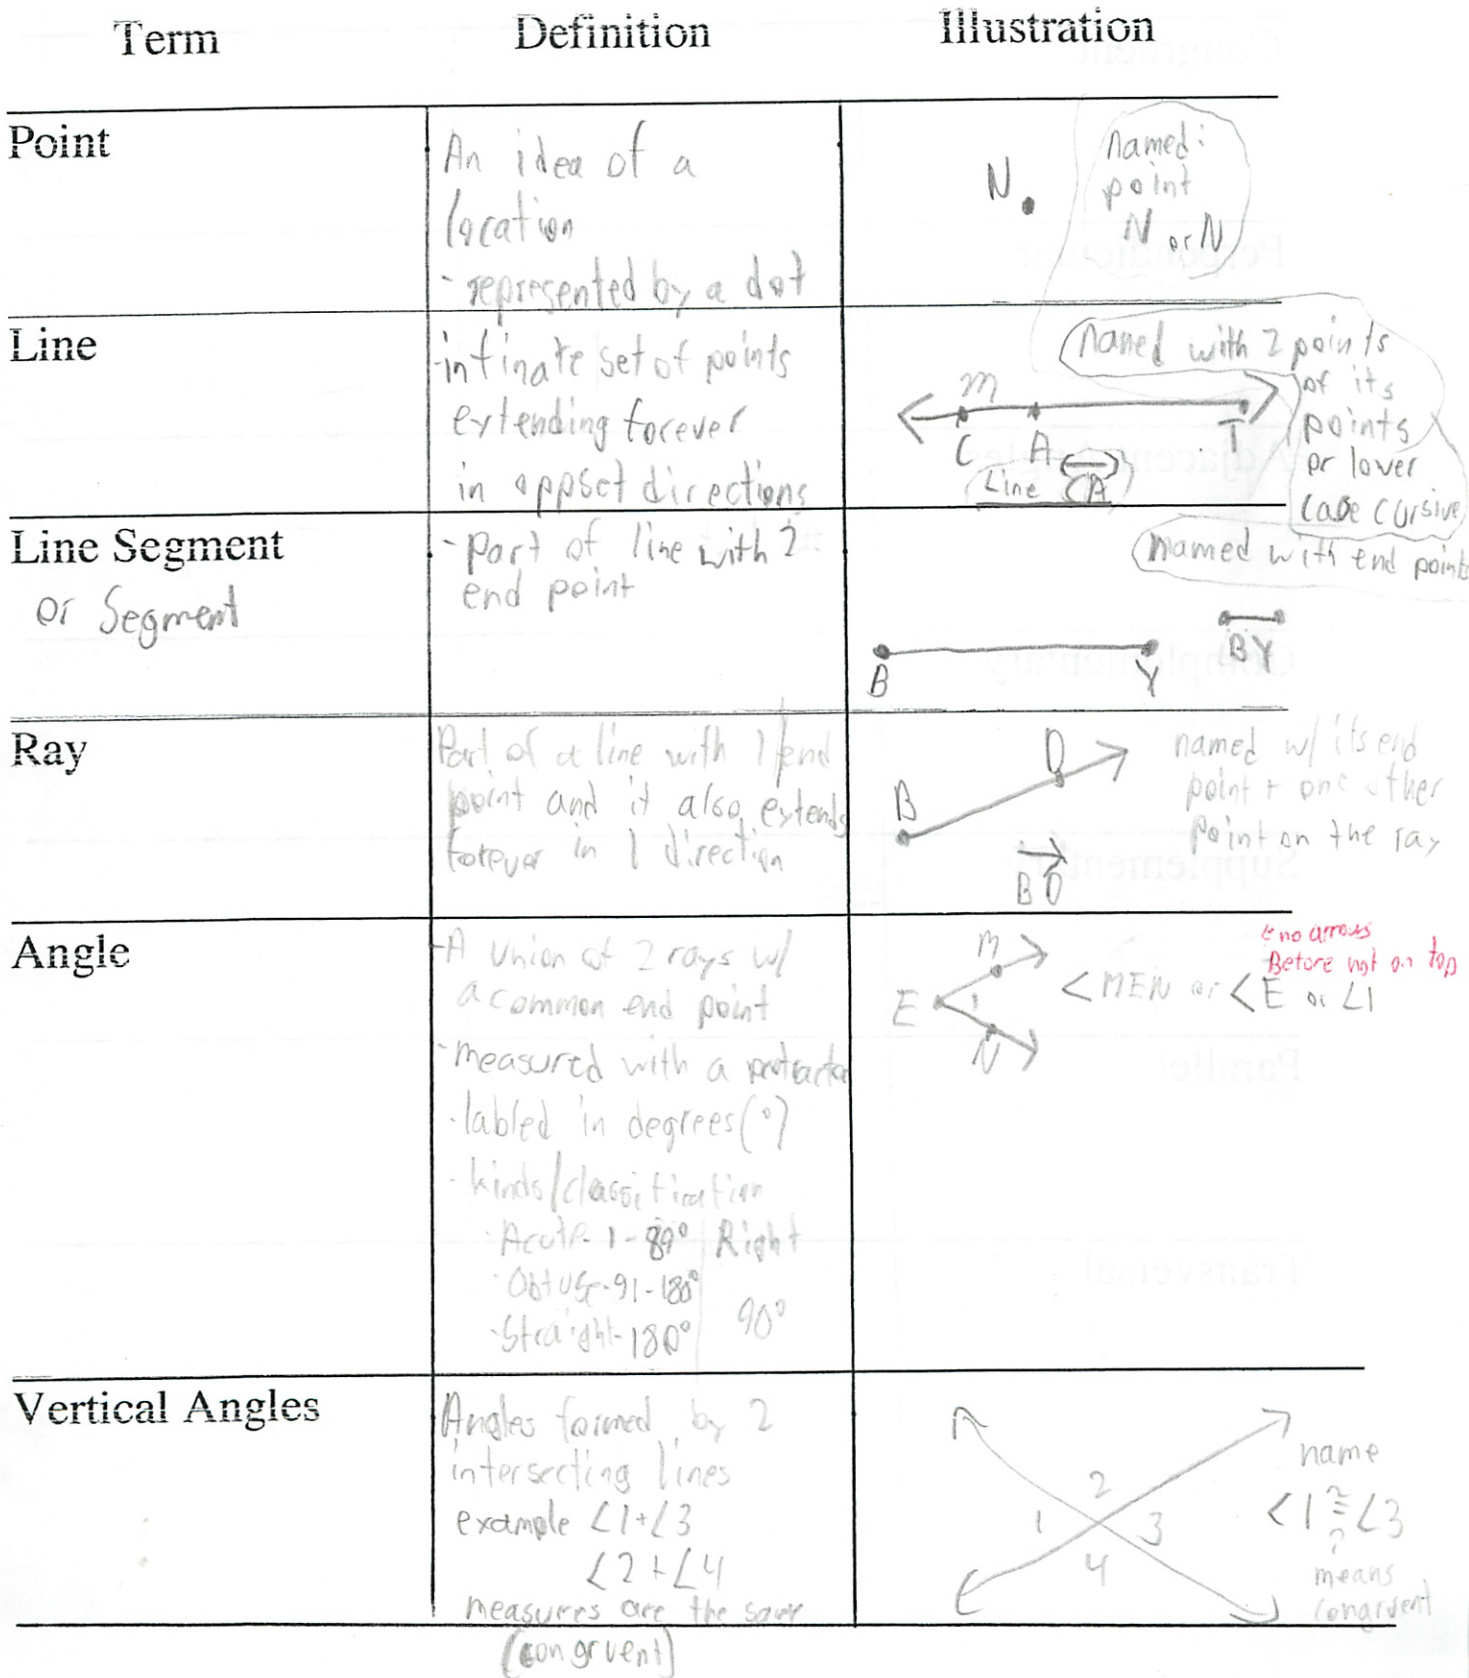 Term Definition Illustration
Point
An idea of a
location
- represented by a dot
N
named:
point
N or N
Line
-infinate set of points
extending forever
in oppset directions
named with 2 points
of its
points
or lower
case cursive
m
C A T
Line CA
Line Segment
or Segment
- part of line with 2
end point
named with end points
B Y
BY
Ray
Part of a line with 1 end
point and it also extends
forever in 1 direction
B D
BD
named w/ its end
point + one other
point on the ray
Angle
-A union of 2 rays w/
a common end point
-measured with a protractor
-labled in degrees (°)
-kinds/classification
-Acute-1-89° Right
-Obtuse-91-180°
90°
-Straight-180°
M
E 1
N
<MEN or <E or ∠1
no arrows
Before not on top
Vertical Angles
Angles formed by 2
intersecting lines
example ∠1+∠3
∠2+∠4
measures are the same
(congruent)
1 2 3 4
name
<1≅∠3
means
congruent